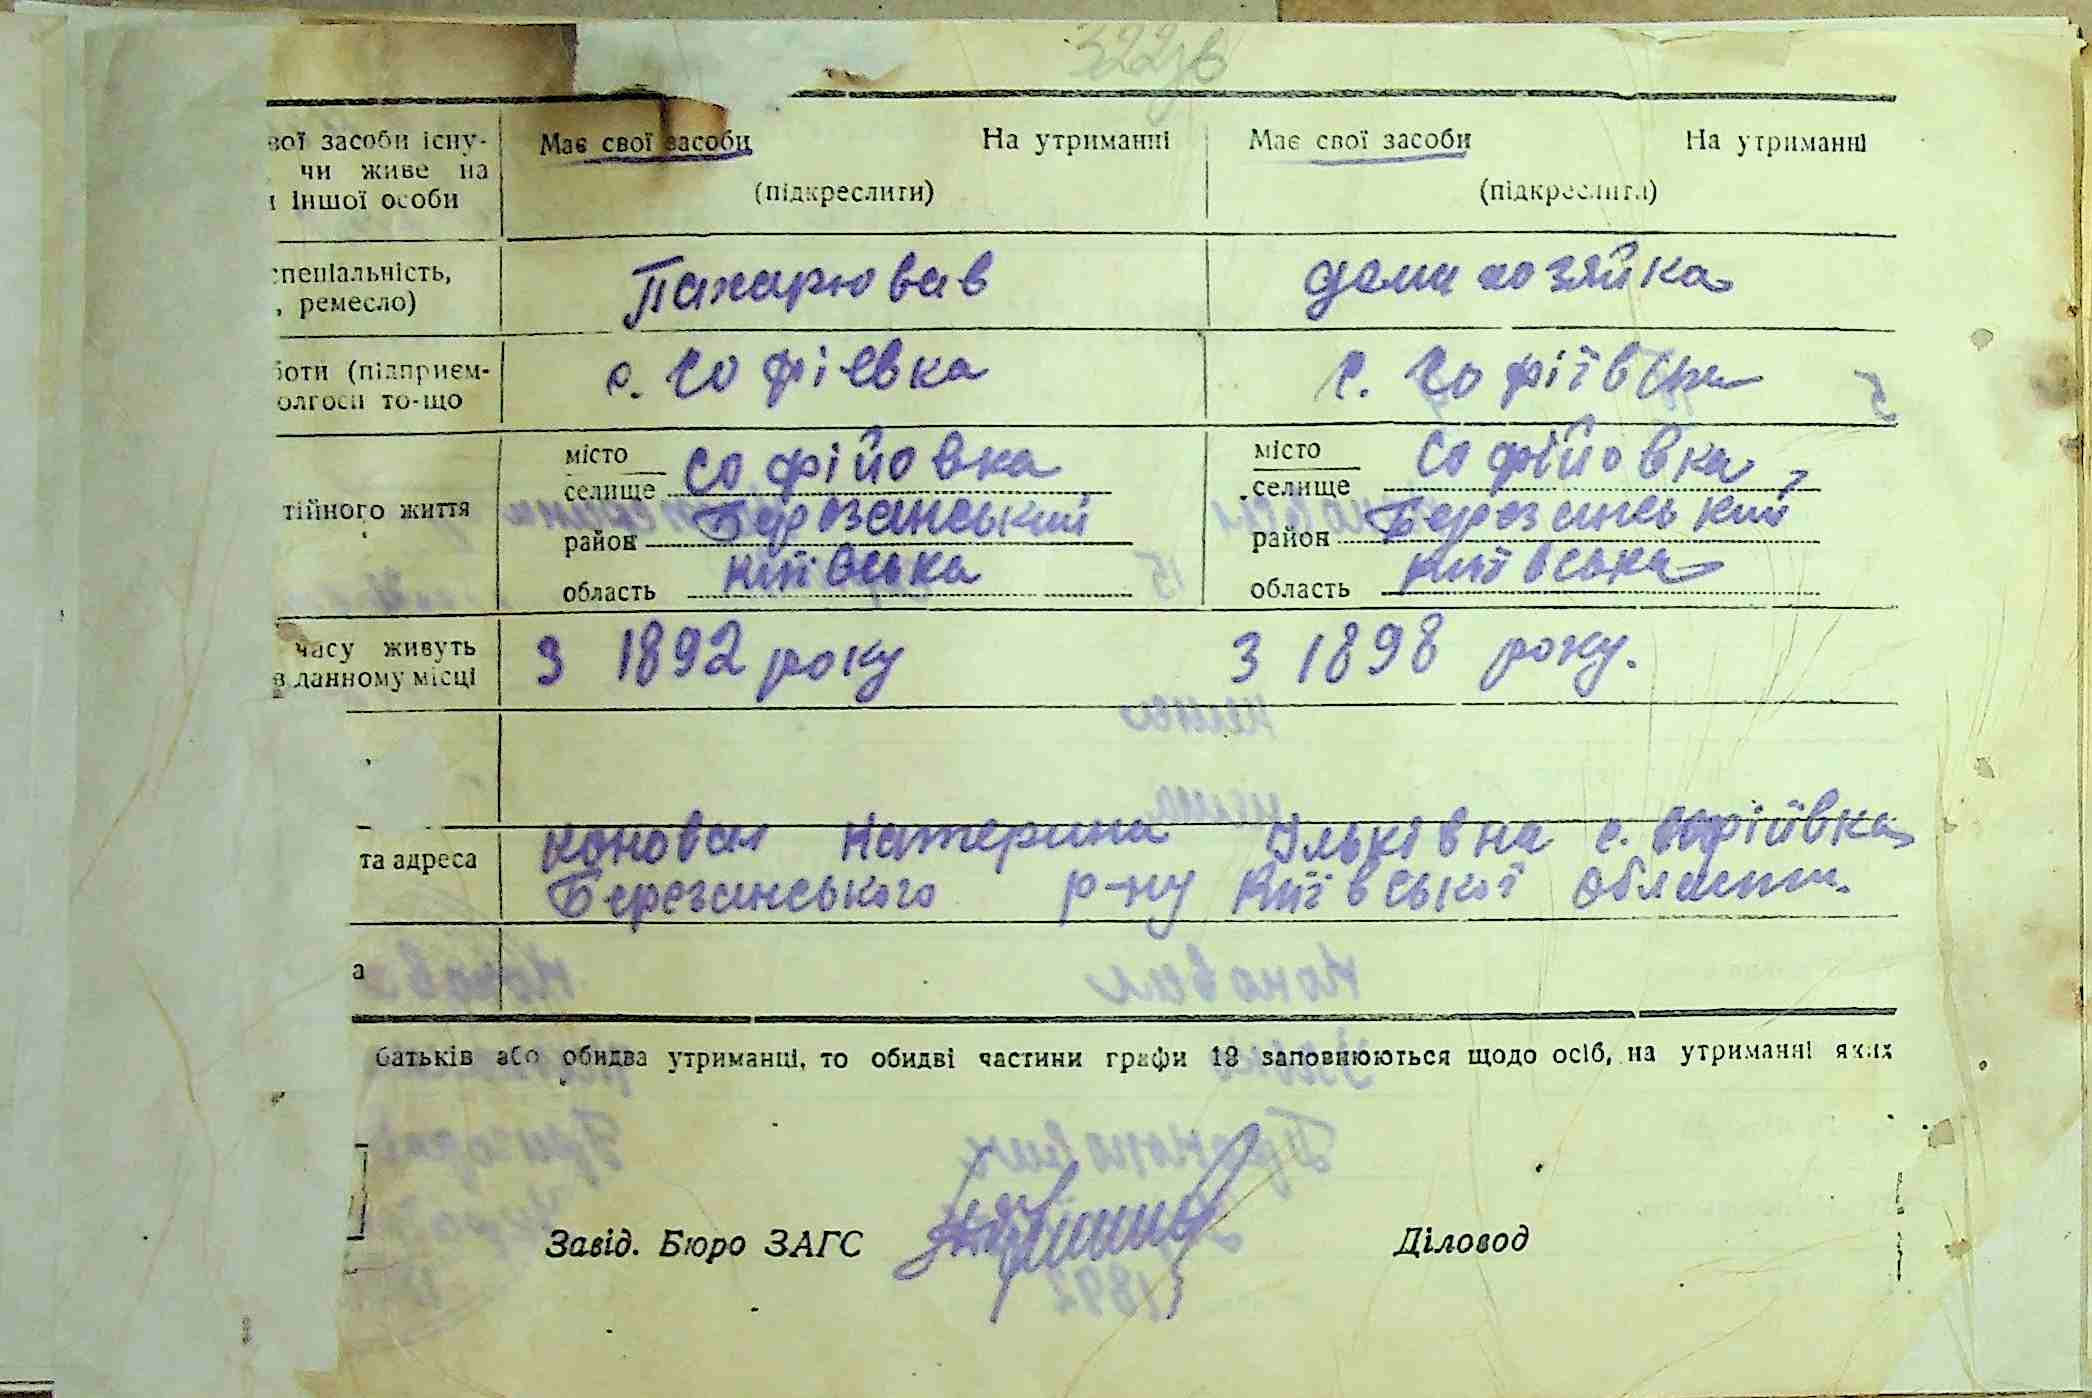 322зв
вої засоби існу- Має свої засоби На утриманні Має свої засоби На утриманні
чи живе на
и іншої особи (підкреслити) (підкреслити)
спеціальність, Пахарював доми хозяйка
, ремесло)
боти (підприєм- с. Софіевка с. Софіївка
олгосп то-що
місто Софійовка місто Софійовка,
селище селище
тійного життя район Березанський район Березанський
область Київська область Київська
часу живуть З 1892 року З 1898 року.
в данному місці
Коновал Катерина Ильківна с. Софіївка
та адреса Березанського р-ну Київської області.
а
батьків або обидва утриманці, то обидві частини графи 18 заповнюються щодо осіб, на утриманні яких
Завід. Бюро ЗАГС Діловод